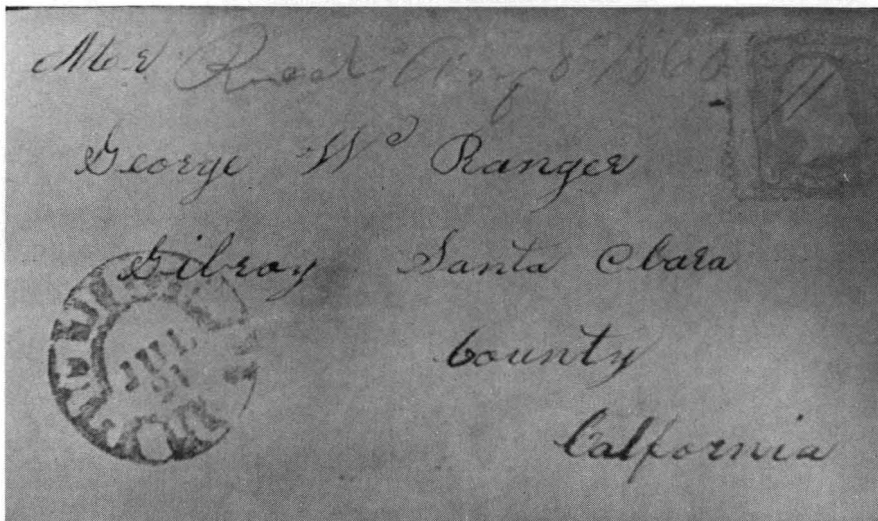 Mr Recd Aug 8
George W Ranger
Gilroy Santa Clara
County
Calfornia
JUL
21